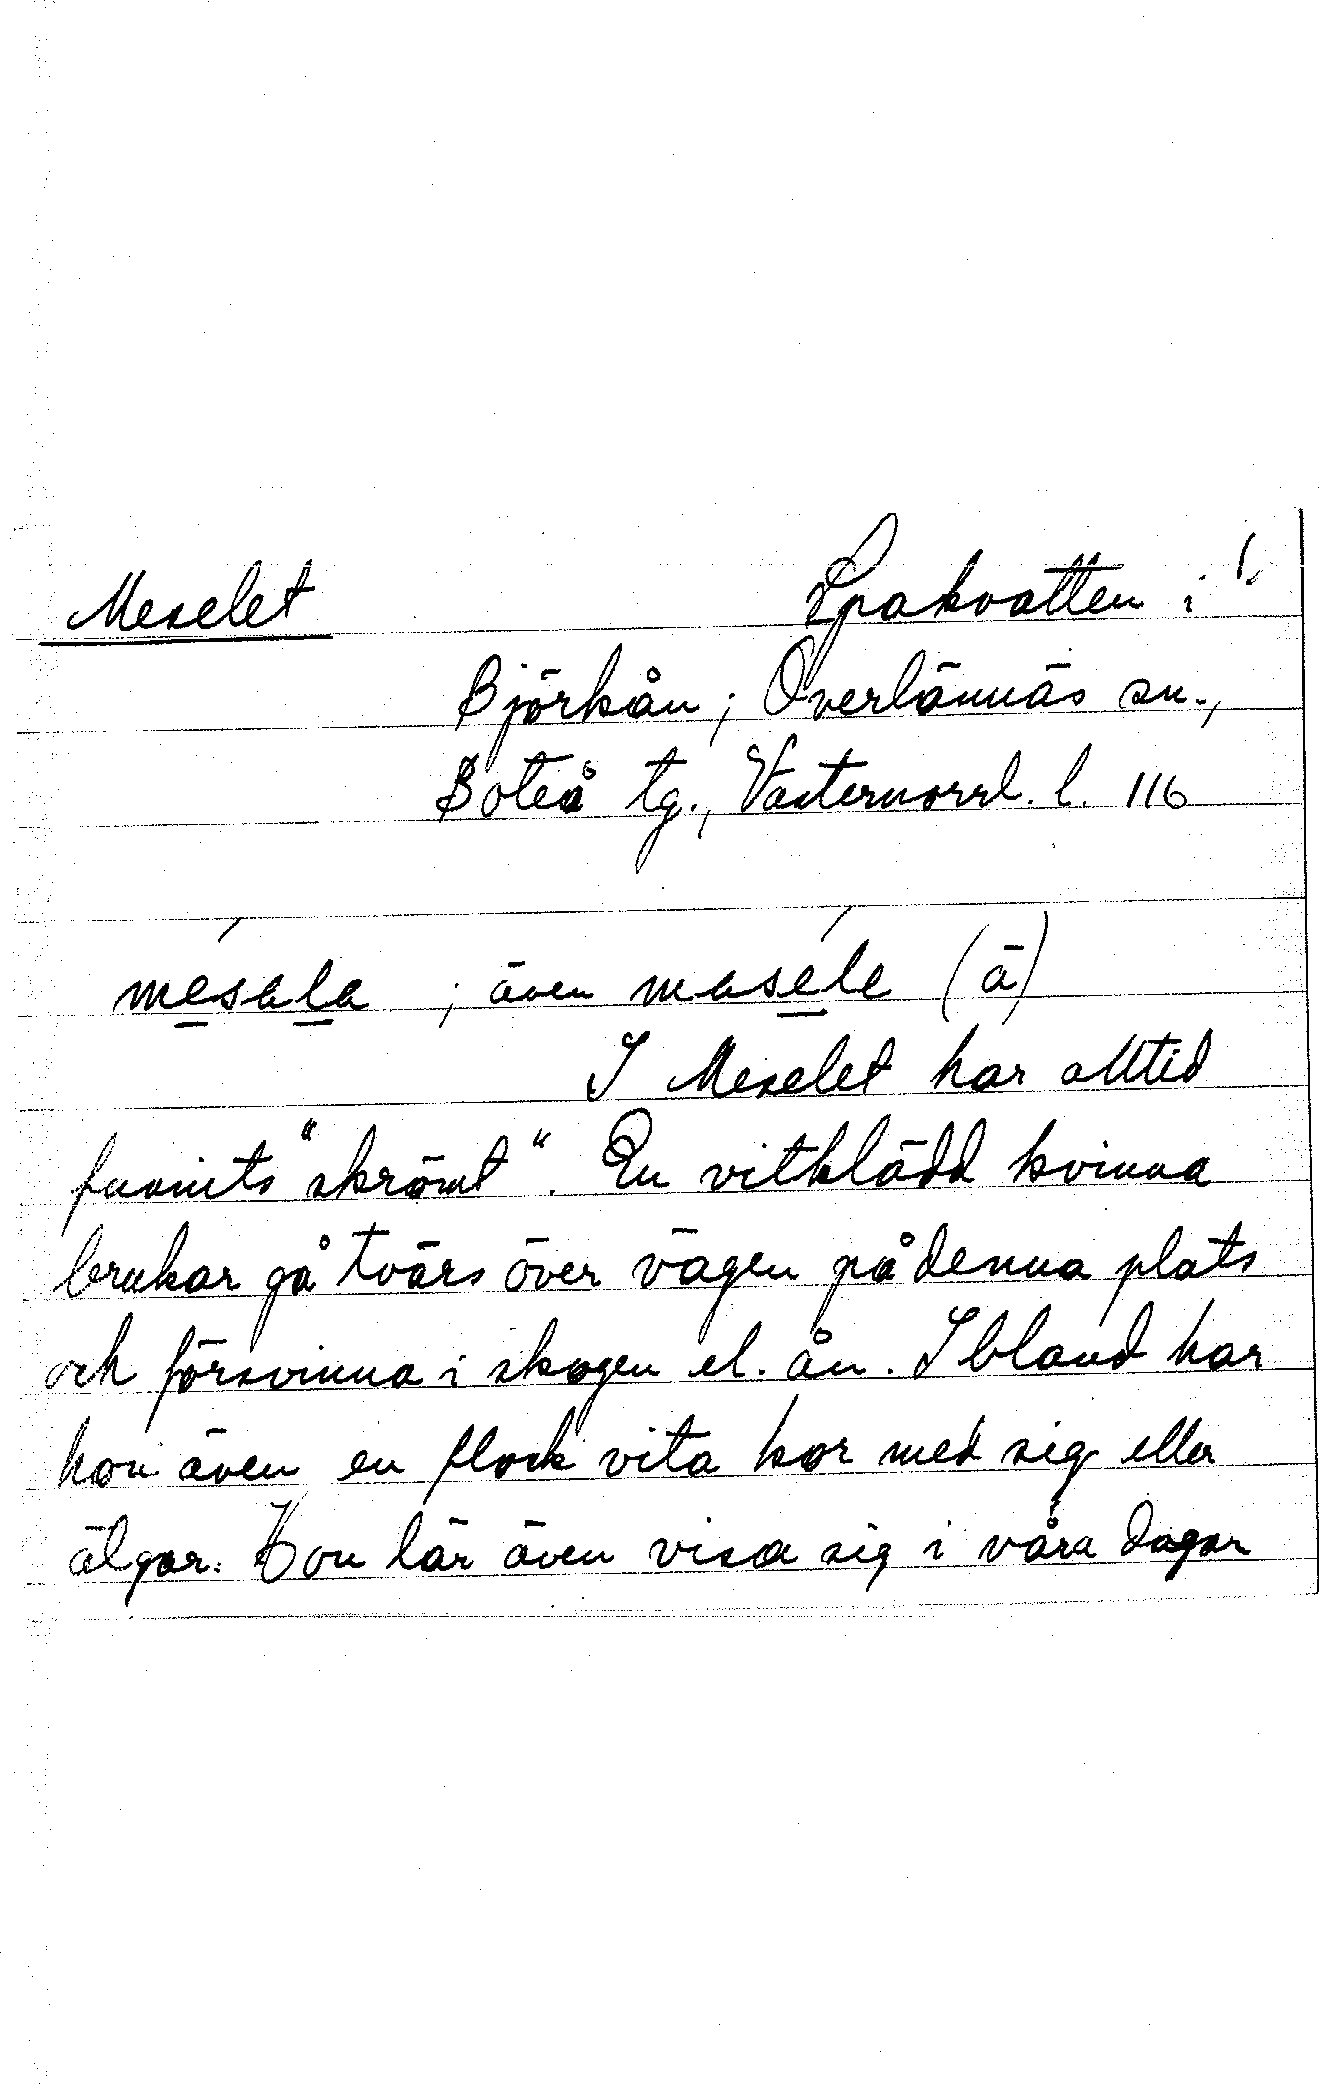 Meselet Spakvatten i 1.
Björkån; Överlännäs sn.,
Boteå tg., Västernorrl. l. 116
mésala ; även maséle (ä)
I Meselet har alltid
funnits "skrömt". En vitklädd kvinna
brukar gå tvärs över vägen på denna plats
och försvinna i skogen el. ån. Ibland har
hon även en flock vita kor med sig eller
älgar. Hon lär även visa sig i våra dagar